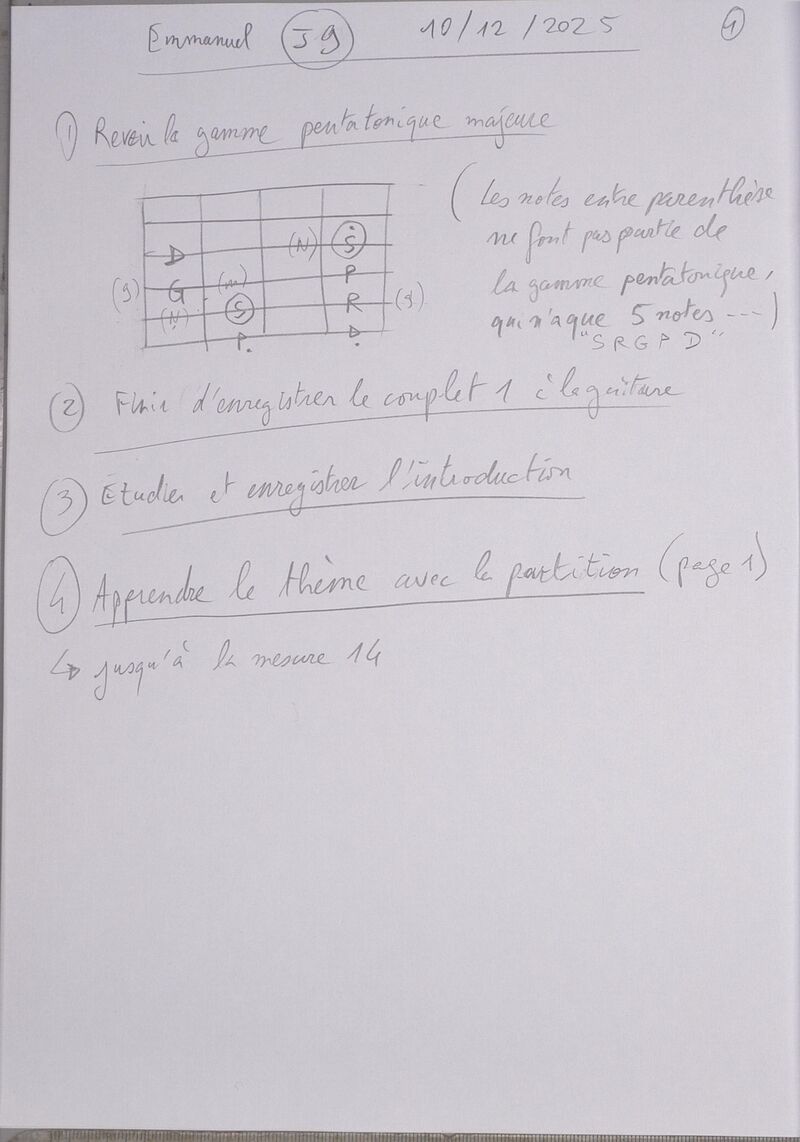 Emmanuel J9 10/12/2025 1
1 Revoir la gamme pentatonique majeure
(Les notes entre parenthèse
ne font pas partie de
la gamme pentatonique,
qui n'a que 5 notes ---)
"S R G P D"
D (N) S
(g) G (m) P
(N) S R (g)
P D
2 Finir d'enregistrer le couplet 1 à la guitare
3 Etudier et enregistrer l'introduction
4 Apprendre le thème avec la partition (page 1)
↳ jusqu'à la mesure 14